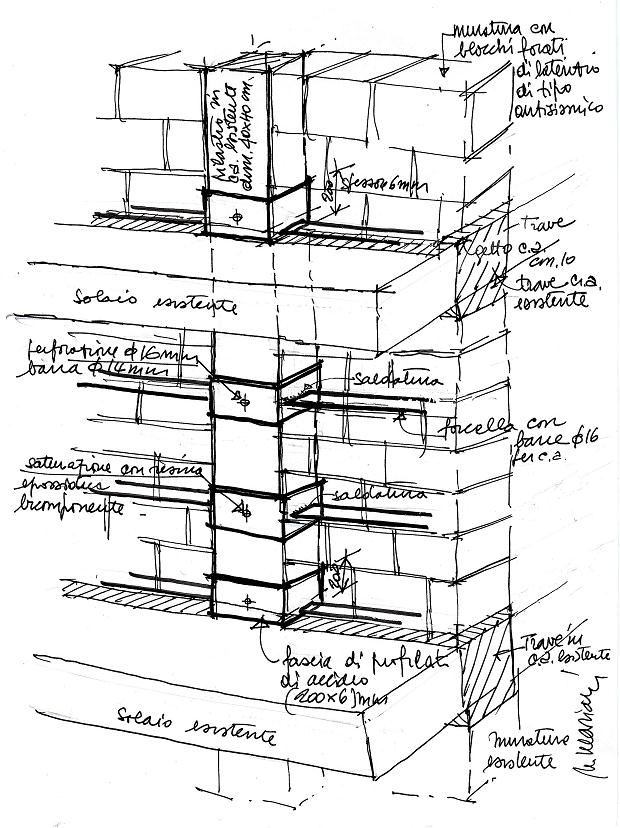 muratura con
blocchi forati
di laterizio
di tipo
antisismico
pilastro in
c.a. esistente
dim. 40x40 cm.
200
spess. 6 mm
trave
getto c.a.
cm. 10
trave c.a.
esistente
Solaio esistente
perforazione ϕ16mm
barra ϕ14mm
saldatura
forcella con
barre ϕ16
per c.a.
saturazione con resina
epossidica
bicomponente
saldatura
200
fascia di profilati
di acciaio
(200x6)mm
Trave in
c.a. esistente
Solaio esistente
muratura
esistente